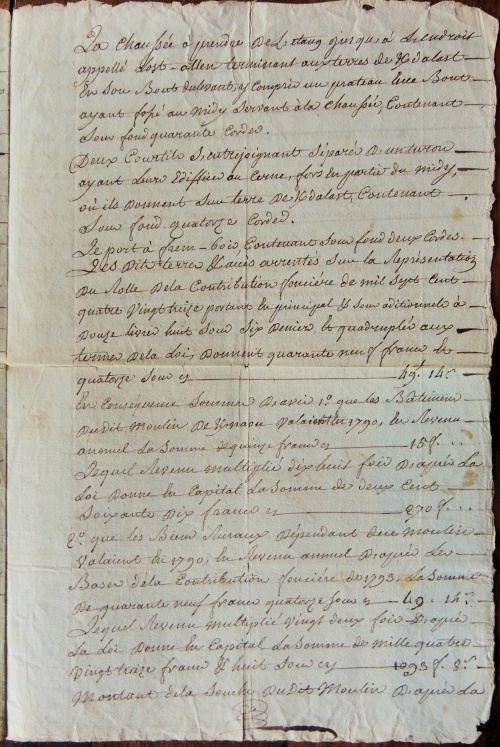 La chaussée à prendre De Letang jusqu'à Lendroit
appellé Lost-allen terminant aux terres de Kdalast
En son Bout dulevant, y Compris un prateau Euee Bout
ayant fossé au midy Servant à la chaussée, Contenant
Sous fond quarante Cordes.
Deux Courtils S'entrejoignant Séparés D'un turon
ayant Leurs Edifices au Cerne, fors En partie du midy,
où ils Donnent Sur terre de Kdalast, Contenant
Sous fond quatorze Cordes.
Le port à fem-bois Contenant Sous fond deux Cordes.
Les Dits terres & aués arrentés Sur La Représentation
Du Rolle De La Contribution foncière de mil Sept Cent
quatre Vingt treize portant En principal & Sous aditionels à
Douze livres huit Sous Six Deniers Et quadruplés aux
termes De La Loi, Donnent quarante neuf francs Et
quatorze Sous cy 49. 14s
En Conséquence Sommes D'avis 1o. que les Bâtiments
Dudit Moulin De Valaient En 1790, En Revenu
annuel La Somme de quinze francs cy 15f...
Lequel Revenu multiplié dix huit fois D'après La
Loi Donne En Capital La Somme de deux Cent
Soixante Dix francs cy 270f...
2o. que les Biens Ruraux Dépendant de ce Moulin
Valaient En 1790, En Revenu annuel D'après Les
Bases de la Contribution foncière de 1793 La Somme
De quarante neuf francs quatorze Sous cy 49. 14s
Lequel Revenu multiplié Vingt deux fois D'après
La Loi Donne En Capital La Somme de mille quatre
Vingt treize francs & huit Sous cy 1093f. 8s
Montant de la Souche Dudit Moulin D'après La